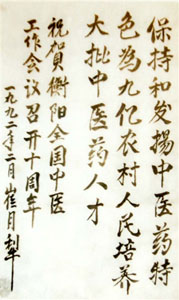 保持和发揚中医药特
色为九亿农村人民培养
大批中医药人才
祝賀衡阳全国中医
工作会议召开十周年
一九九二年二月崔月犁